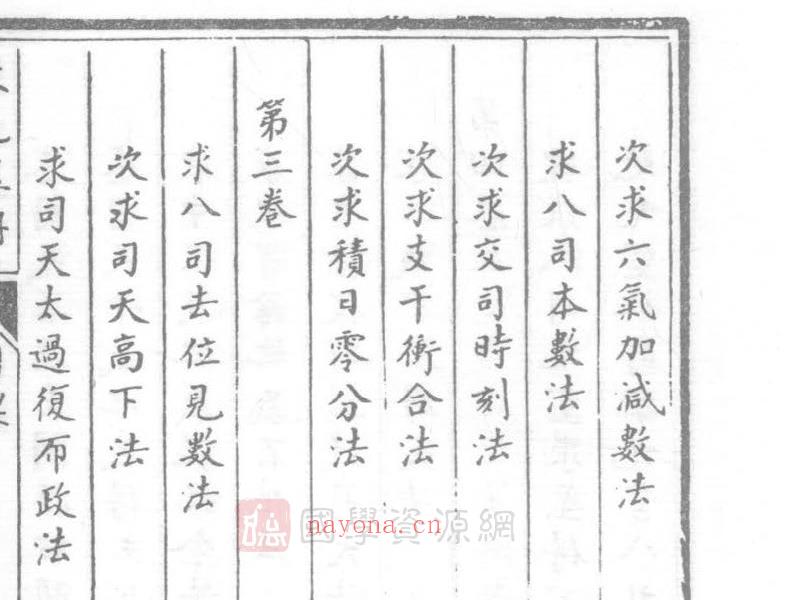 次求六氣加減數法
求八司本數法
次求交司時刻法
次求支干衡合法
次求積日零分法
第三卷
求八司去位見數法
次求司天高下法
求司天太過復布政法
國學資源網
nayona.cn